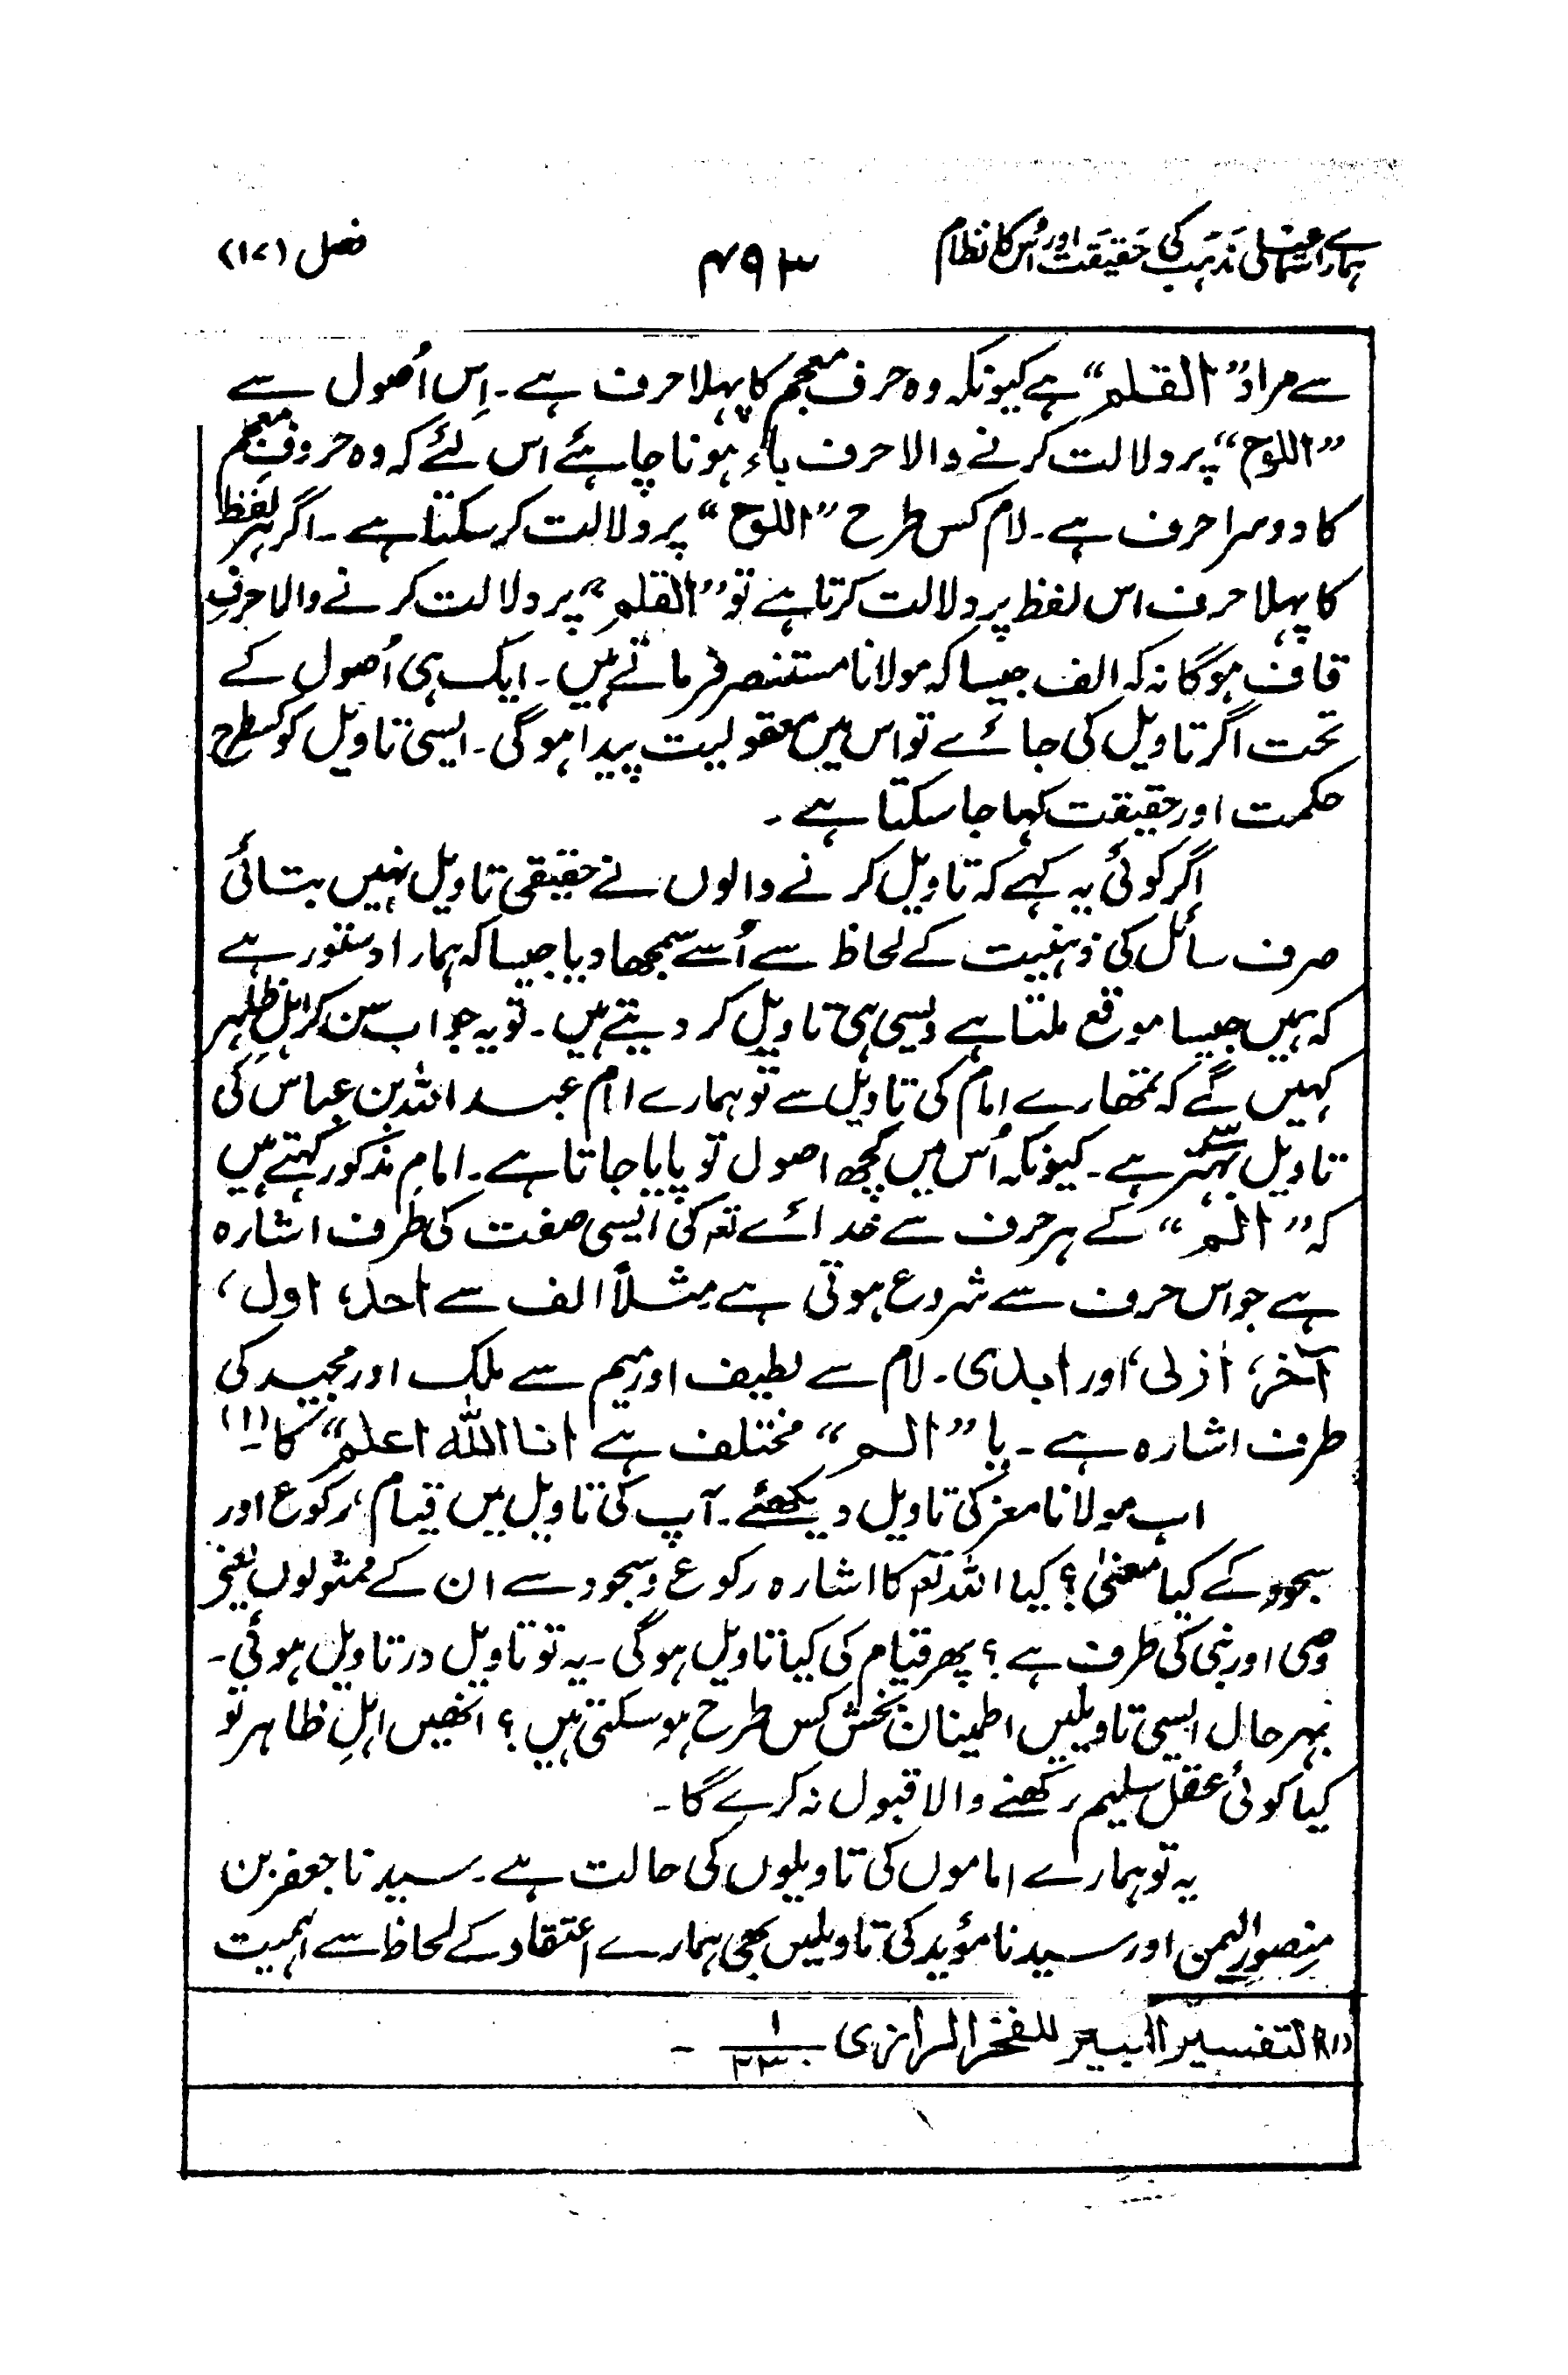 ہمارے اسماعیلی مذہب کی حقیقت اور اُس کا نظام ۴۹۳ فصل (۱۷)
سے مراد "القلم" ہے کیونکہ وہ حرف معجم کا پہلا حرف ہے۔ اِس اُصول سے
"اللوح" پر دلالت کرنے والا حرف باء ہونا چاہئے اس لئے کہ وہ حروف معجم
کا دوسرا حرف ہے۔ لام کس طرح "اللوح" پر دلالت کر سکتا ہے۔ اگر ہر لفظ
کا پہلا حرف اس لفظ پر دلالت کرتا ہے تو "القلم" پر دلالت کرنے والا حرف
قاف ہوگا نہ کہ الف جیسا کہ مولانا مستنصر فرماتے ہیں۔ ایک ہی اُصول کے
تحت اگر تاویل کی جائے تو اس میں معقولیت پیدا ہوگی۔ ایسی تاویل کو کسطرح
حکمت اور حقیقت کہا جا سکتا ہے۔
اگر کوئی یہ کہے کہ تاویل کرنے والوں نے حقیقی تاویل نہیں بتائی
صرف سائل کی ذہنیت کے لحاظ سے اُسے سمجھا دیا جیسا کہ ہمارا دستور ہے
کہ ہمیں جیسا موقع ملتا ہے ویسی ہی تاویل کر دیتے ہیں۔ تو یہ جواب سن کر اہلِ ظاہر
کہیں گے کہ تمھارے امام کی تاویل سے تو ہمارے امام عبد اللہ بن عباس کی
تاویل بہتر ہے۔ کیونکہ اُس میں کچھ اصول تو پایا جاتا ہے۔ امامِ مذکور کہتے ہیں
کہ "الم" کے ہر حرف سے خدائے تعہ کی ایسی صفت کی طرف اشارہ
ہے جو اس حرف سے شروع ہوتی ہے مثلاً الف سے احد، اول،
آخر، ازلی، اور ابدی۔ لام سے لطیف اور میم سے ملک اور مجید کی
طرف اشارہ ہے۔ یا "الم" مختلف ہے انا اللہ اعلم" کا۔(۱)
اب مولانا معز کی تاویل دیکھئے۔ آپ کی تاویل میں قیام، رکوع اور
سجود کے کیا معنیٰ؟ کیا اللہ تعہ کا اشارہ رکوع و سجود سے ان کے ممثولوں یعنی
وصی اور نبی کی طرف ہے؟ پھر قیام کی کیا تاویل ہوگی۔ یہ تو تاویل در تاویل ہوئی۔
بہر حال ایسی تاویلیں اطمینان بخش کس طرح ہو سکتی ہیں؟ انھیں اہلِ ظاہر تو
کیا کوئی عقل سلیم رکھنے والا قبول نہ کرے گا۔
یہ تو ہمارے اماموں کی تاویلوں کی حالت ہے۔ سیدنا جعفر بن
منصور الیمن اور سیدنا مؤید کی تاویلیں بھی ہمارے اعتقاد کے لحاظ سے اہمیت
(۱) التفسیر الکبیر للفخر الرازی ۱/۲۳۰ ۔